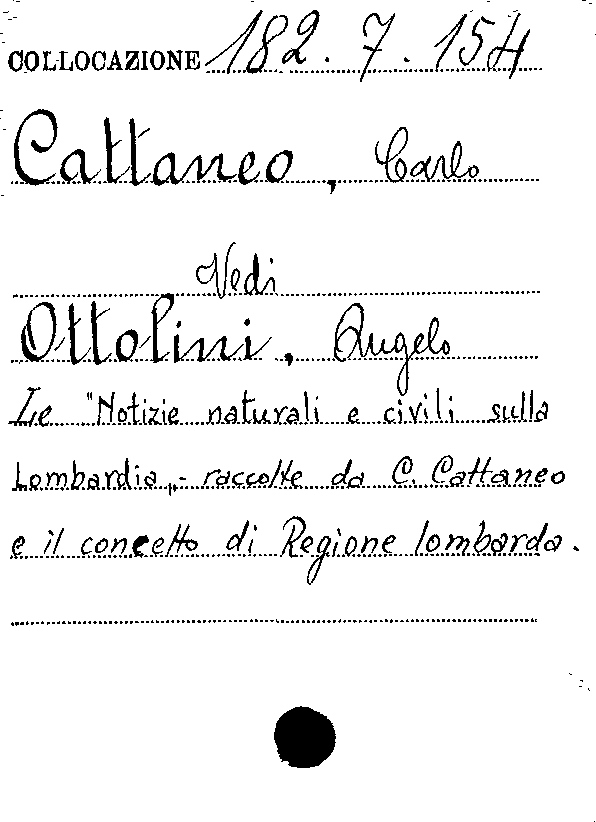 COLLOCAZIONE 182.7.154
Cattaneo, Carlo
Vedi
Ottolini, Angelo
Le "Notizie naturali e civili sulla
Lombardia„- raccolte da C. Cattaneo
e il concetto di Regione lombarda.